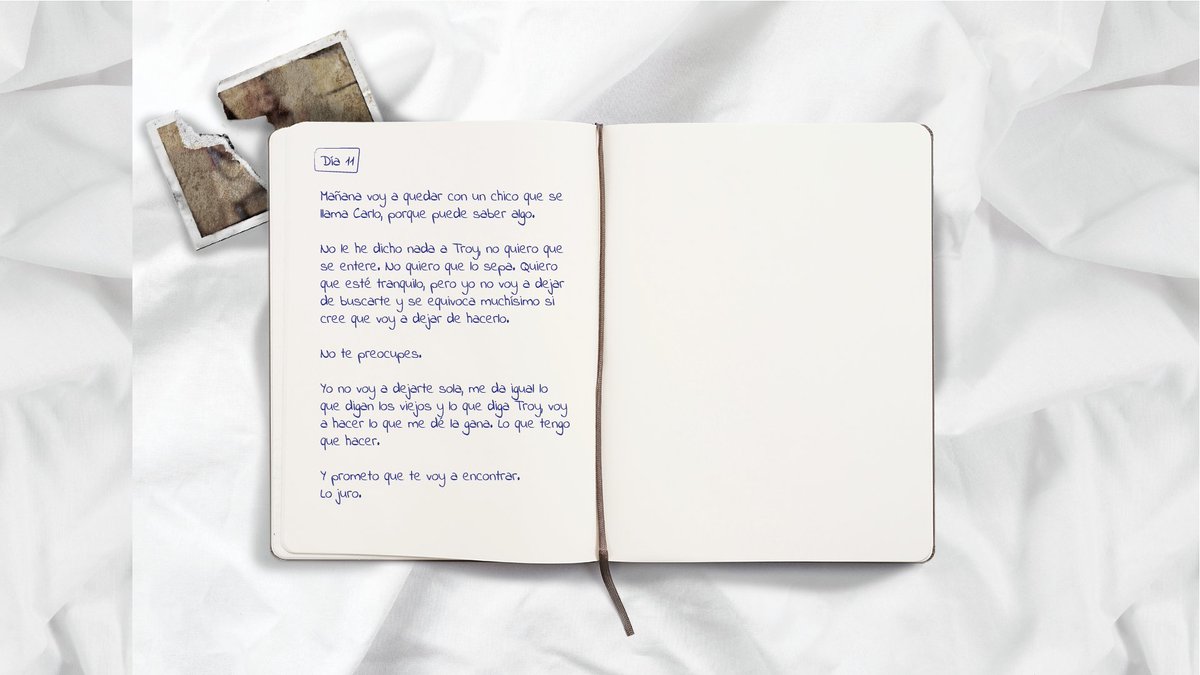 Día 11
Mañana voy a quedar con un chico que se
llama Carlo, porque puede saber algo.
No le he dicho nada a Troy, no quiero que
se entere. No quiero que lo sepa. Quiero
que esté tranquilo, pero yo no voy a dejar
de buscarte y se equivoca muchísimo si
cree que voy a dejar de hacerlo.
No te preocupes.
Yo no voy a dejarte sola, me da igual lo
que digan los viejos y lo que diga Troy, voy
a hacer lo que me de la gana. Lo que tengo
que hacer.
Y prometo que te voy a encontrar.
Lo juro.